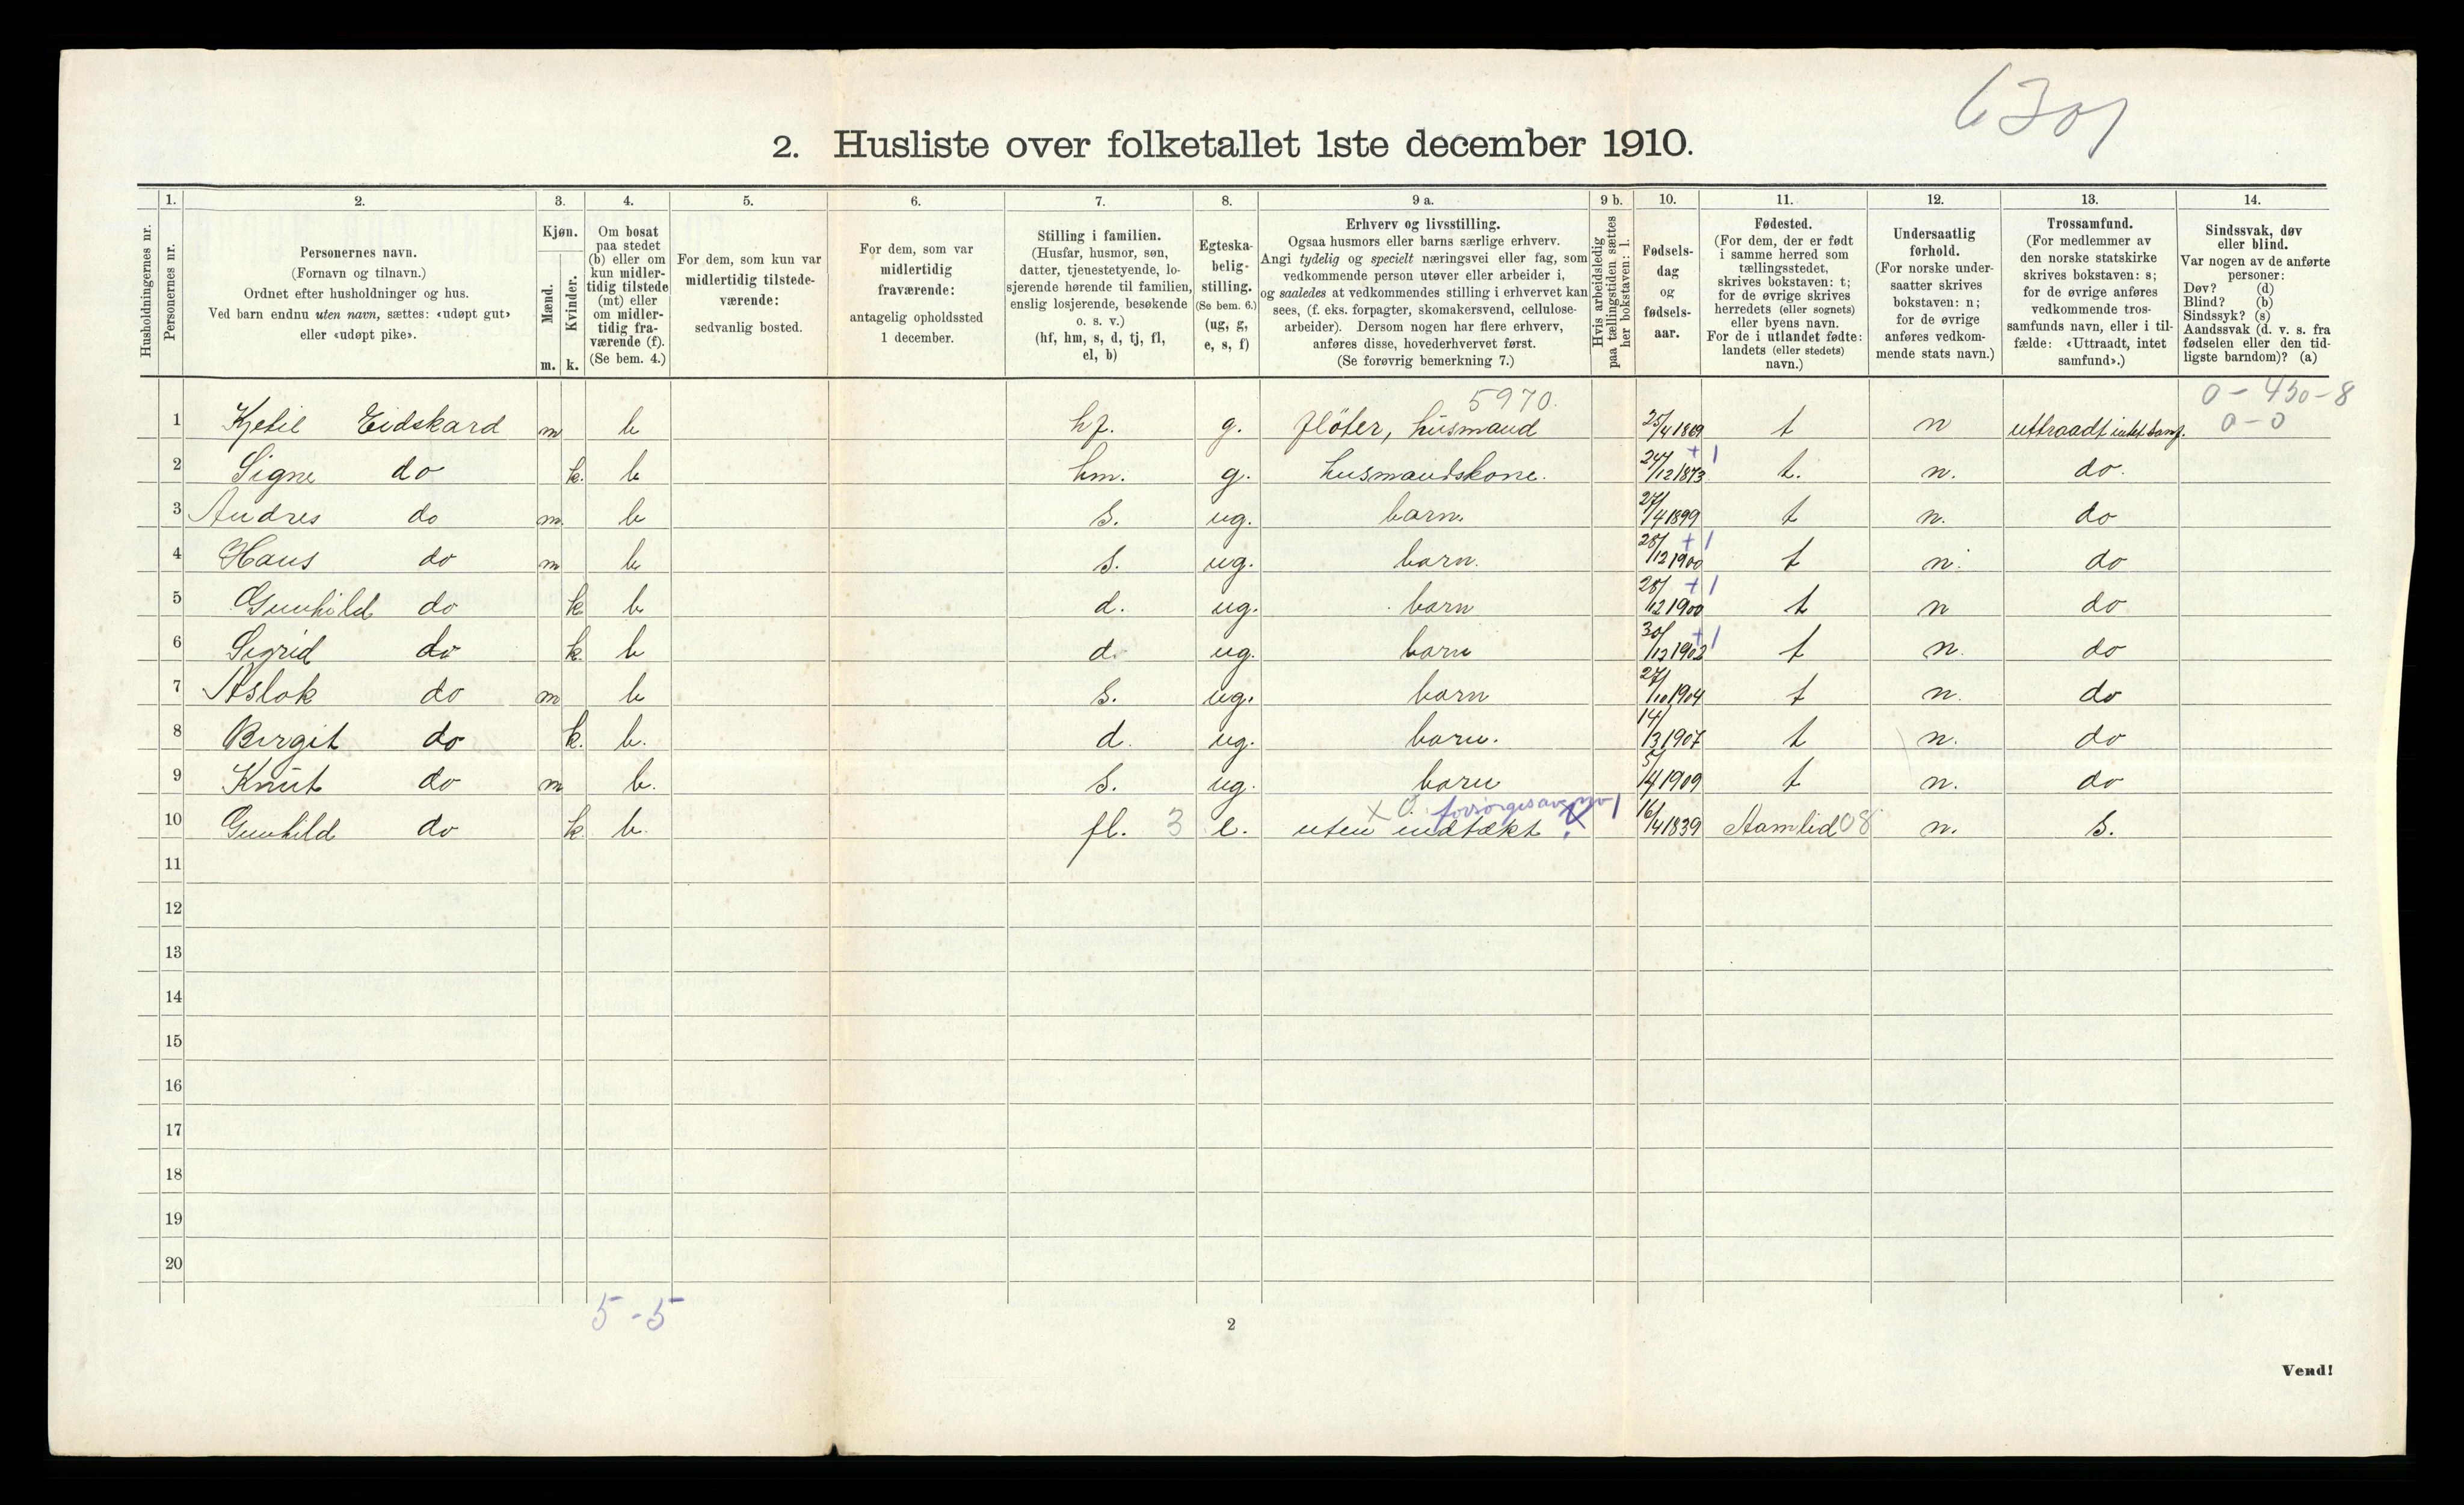 6301
2. Husliste over folketallet 1ste december 1910.
Husholdningernes nr.
1. Personernes nr.
2. Personernes navn.
(Fornavn og tilnavn.)
Ordnet efter husholdninger og hus.
Ved barn endnu uten navn, sættes: «udøpt gut»
eller «udøpt pike».
3. Kjøn.
Mænd. m.
Kvinder. k.
4. Om bosat
paa stedet
(b) eller om
kun midler-
tidig tilstede
(mt) eller
om midler-
tidig fra-
værende (f).
(Se bem. 4.)
5. For dem, som kun var
midlertidig tilstede-
værende:
sedvanlig bosted.
6. For dem, som var
midlertidig
fraværende:
antagelig opholdssted
1 december.
7. Stilling i familien.
(Husfar, husmor, søn,
datter, tjenestetyende, lo-
sjerende hørende til familien,
enslig losjerende, besøkende
o. s. v.)
(hf, hm, s, d, tj, fl,
el, b)
8. Egteska-
belig-
stilling.
(Se bem. 6.)
(ug, g,
e, s, f)
9 a. Erhverv og livsstilling.
Ogsaa husmors eller barns særlige erhverv.
Angi tydelig og specielt næringsvei eller fag, som
vedkommende person utøver eller arbeider i,
og saaledes at vedkommendes stilling i erhvervet kan
sees, (f. eks. forpagter, skomakersvend, cellulose-
arbeider). Dersom nogen har flere erhverv,
anføres disse, hovederhvervet først.
(Se forøvrig bemerkning 7.)
9 b. Hvis arbeidsledig
paa tællingstiden sættes
her bokstaven: l.
10. Fødsels-
dag
og
fødsels-
aar.
11. Fødested.
(For dem, der er født
i samme herred som
tællingsstedet,
skrives bokstaven: t;
for de øvrige skrives
herredets (eller sognets)
eller byens navn.
For de i utlandet fødte:
landets (eller stedets)
navn.)
12. Undersaatlig
forhold.
(For norske under-
saatter skrives
bokstaven: n;
for de øvrige
anføres vedkom-
mende stats navn.)
13. Trossamfund.
(For medlemmer av
den norske statskirke
skrives bokstaven: s;
for de øvrige anføres
vedkommende tros-
samfunds navn, eller i til-
fælde: «Uttraadt, intet
samfund».)
14. Sindssvak, døv
eller blind.
Var nogen av de anførte
personer:
Døv? (d)
Blind? (b)
Sindssyk? (s)
Aandssvak (d. v. s. fra
fødselen eller den tid-
ligste barndom)? (a)
5970. 0-450-8
1 Kjetil Eidskard m b hf. g. fløter, husmand 25/4 1869 t n uttraadt intet samf. 0-0
2 Signe do k. b hm. g. husmandskone. 24/12 1873 +1 t. n. do.
3 Andres do m. b s. ug. barn. 27/4 1899 t n. do
4 Hans do m b s. ug. barn. 28/12 1900 +1 t n. do
5 Gunhild do k b d. ug. barn 28/12 1900 +1 t n do
6 Sigrid do k. b d. ug. barn 30/12 1902 +1 t n. do
7 Aslak do m b s. ug. barn 27/10 1904 t n. do
8 Birgit do k. b. d. ug. barn. 14/3 1907 t n. do
9 Knut do m b. s. ug. barn 5/4 1909 t n. do
x 0.
10 Gunhild do k b. fl. 3 e. uten indtækt 16/4 1839 08 n. s.
11
12
13
14
15
16
17
18
19
20
5-5
2
Vend!